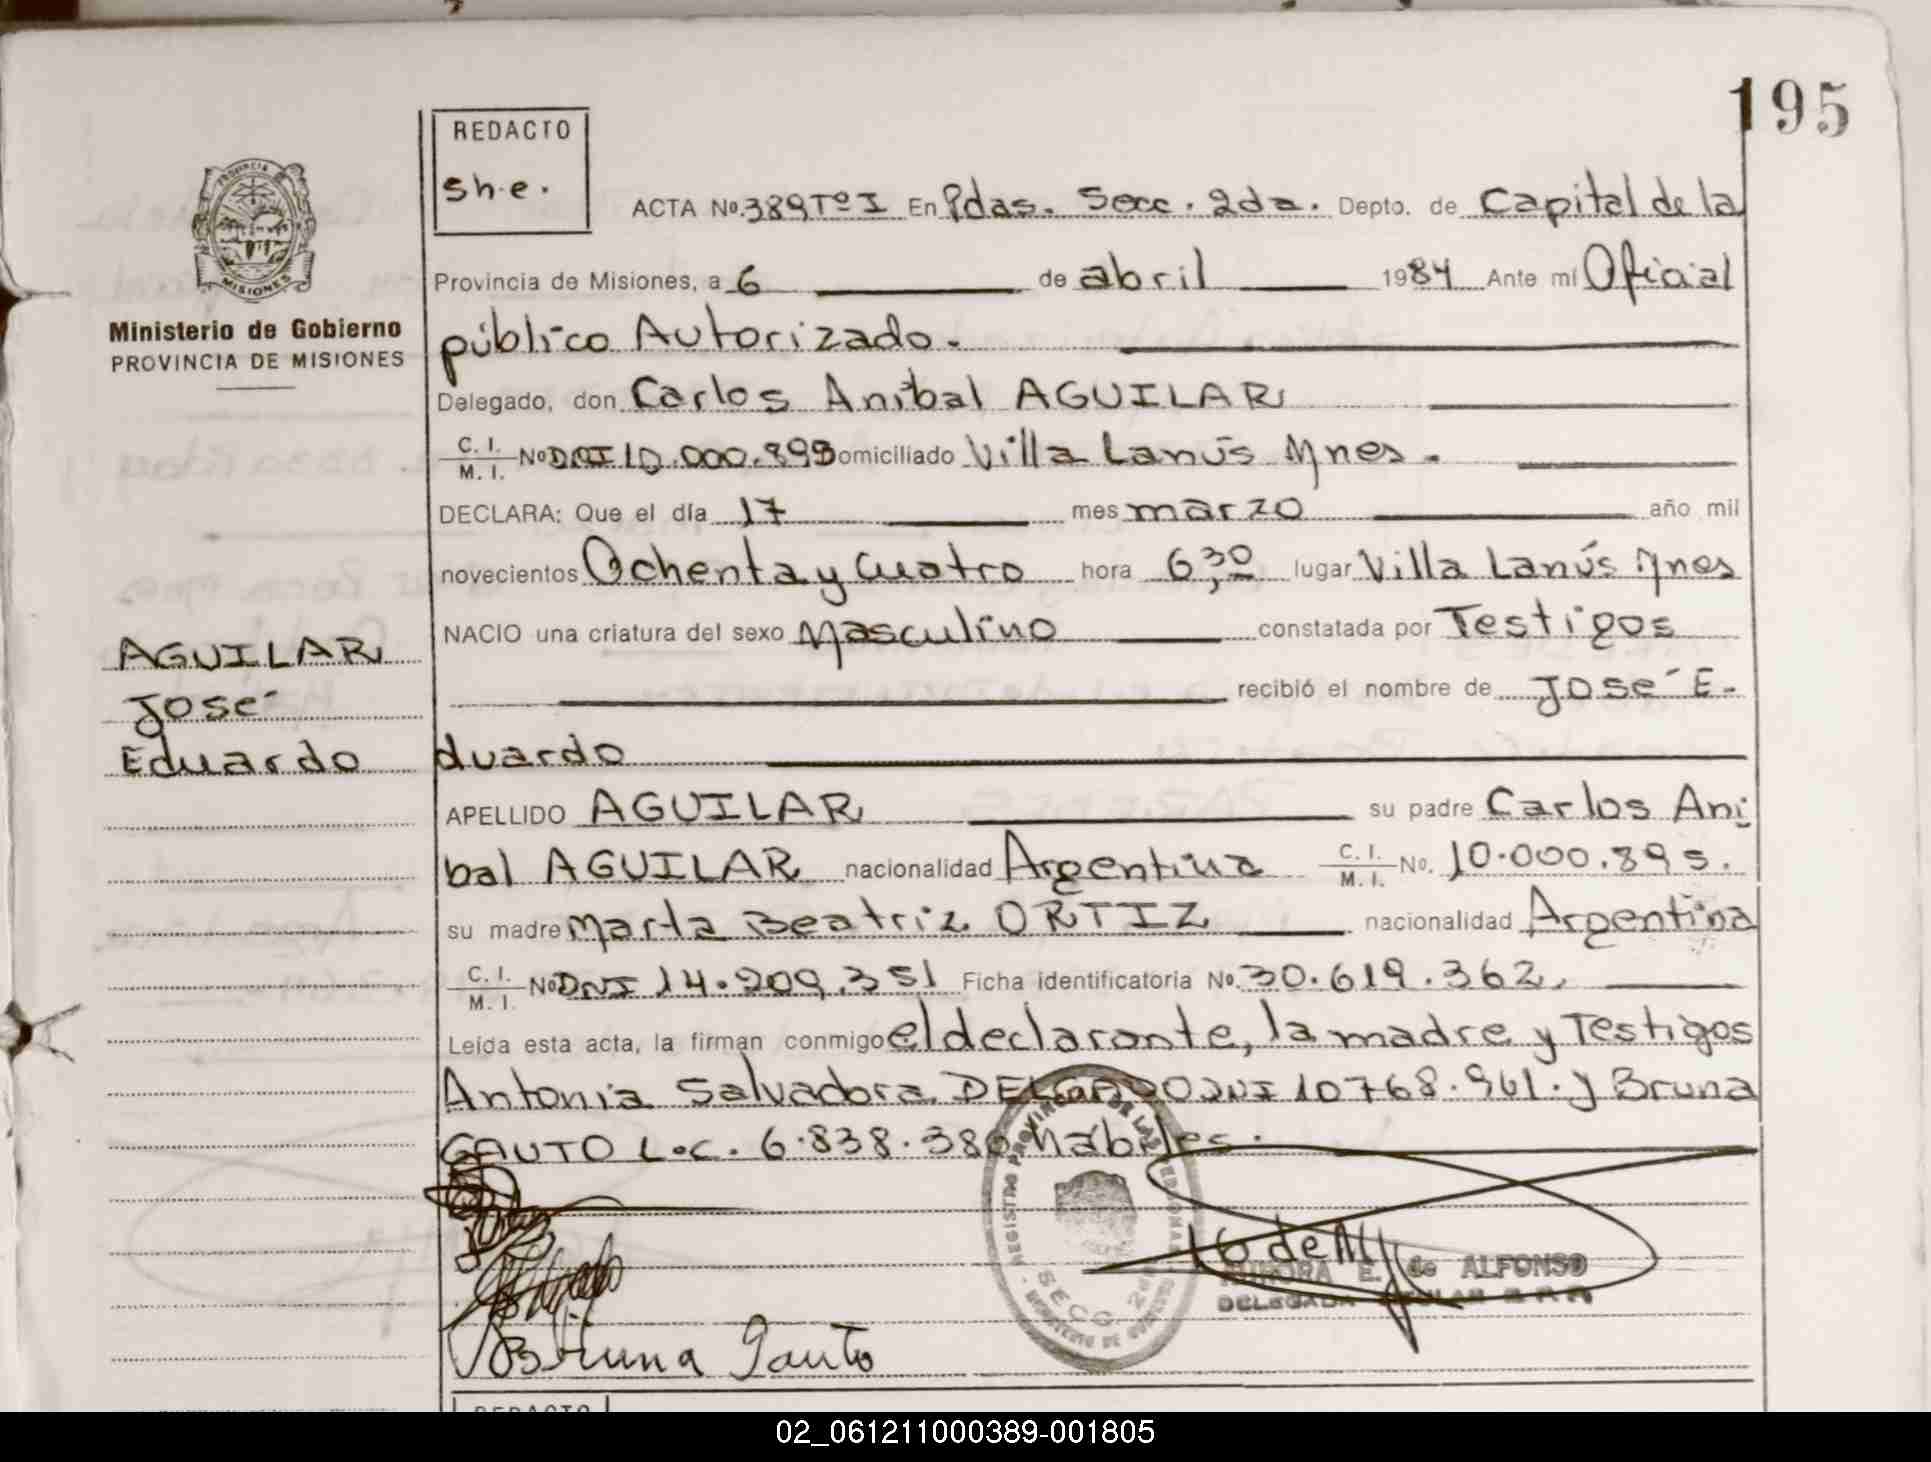 195
REDACTO
sh.e.
ACTA No. 389 Tº I En Pdas. Secc. 2da. Depto. de Capital de la
PROVINCIA DE
MISIONES
Provincia de Misiones, a 6 de abril 1984 Ante mí Oficial
Ministerio de Gobierno
PROVINCIA DE MISIONES
público Autorizado.
Delegado, don Carlos Anibal AGUILAR
C. I. / M. I. No DNI 10.000.895 Domiciliado Villa Lanús Mnes.
DECLARA: Que el día 17 mes marzo año mil
novecientos Ochenta y Cuatro hora 6,30 lugar Villa Lanús Mnes
NACIO una criatura del sexo Masculino constatada por Testigos
AGUILAR
José
Eduardo
recibió el nombre de José E-
duardo
APELLIDO AGUILAR su padre Carlos Aní
bal AGUILAR nacionalidad Argentina C. I. / M. I. No. 10.000.895.
su madre Marta Beatriz ORTIZ nacionalidad Argentina
C. I. / M. I. No DNI 14.209.351 Ficha identificatoria No. 30.619.362.
Leída esta acta, la firman conmigo el declarante, la madre y Testigos
Antonia Salvadora DELGADO DNI 10768.961. y Bruna
GAUTO L.C. 6.838.380 hábiles.
REGISTRO PROVINCIAL DE LAS PERSONAS
SECC 2da
AURORA E. de ALFONSO
DELEGADA TITULAR R.P.P.
Bruna Gauto
REDACTO
02_061211000389-001805